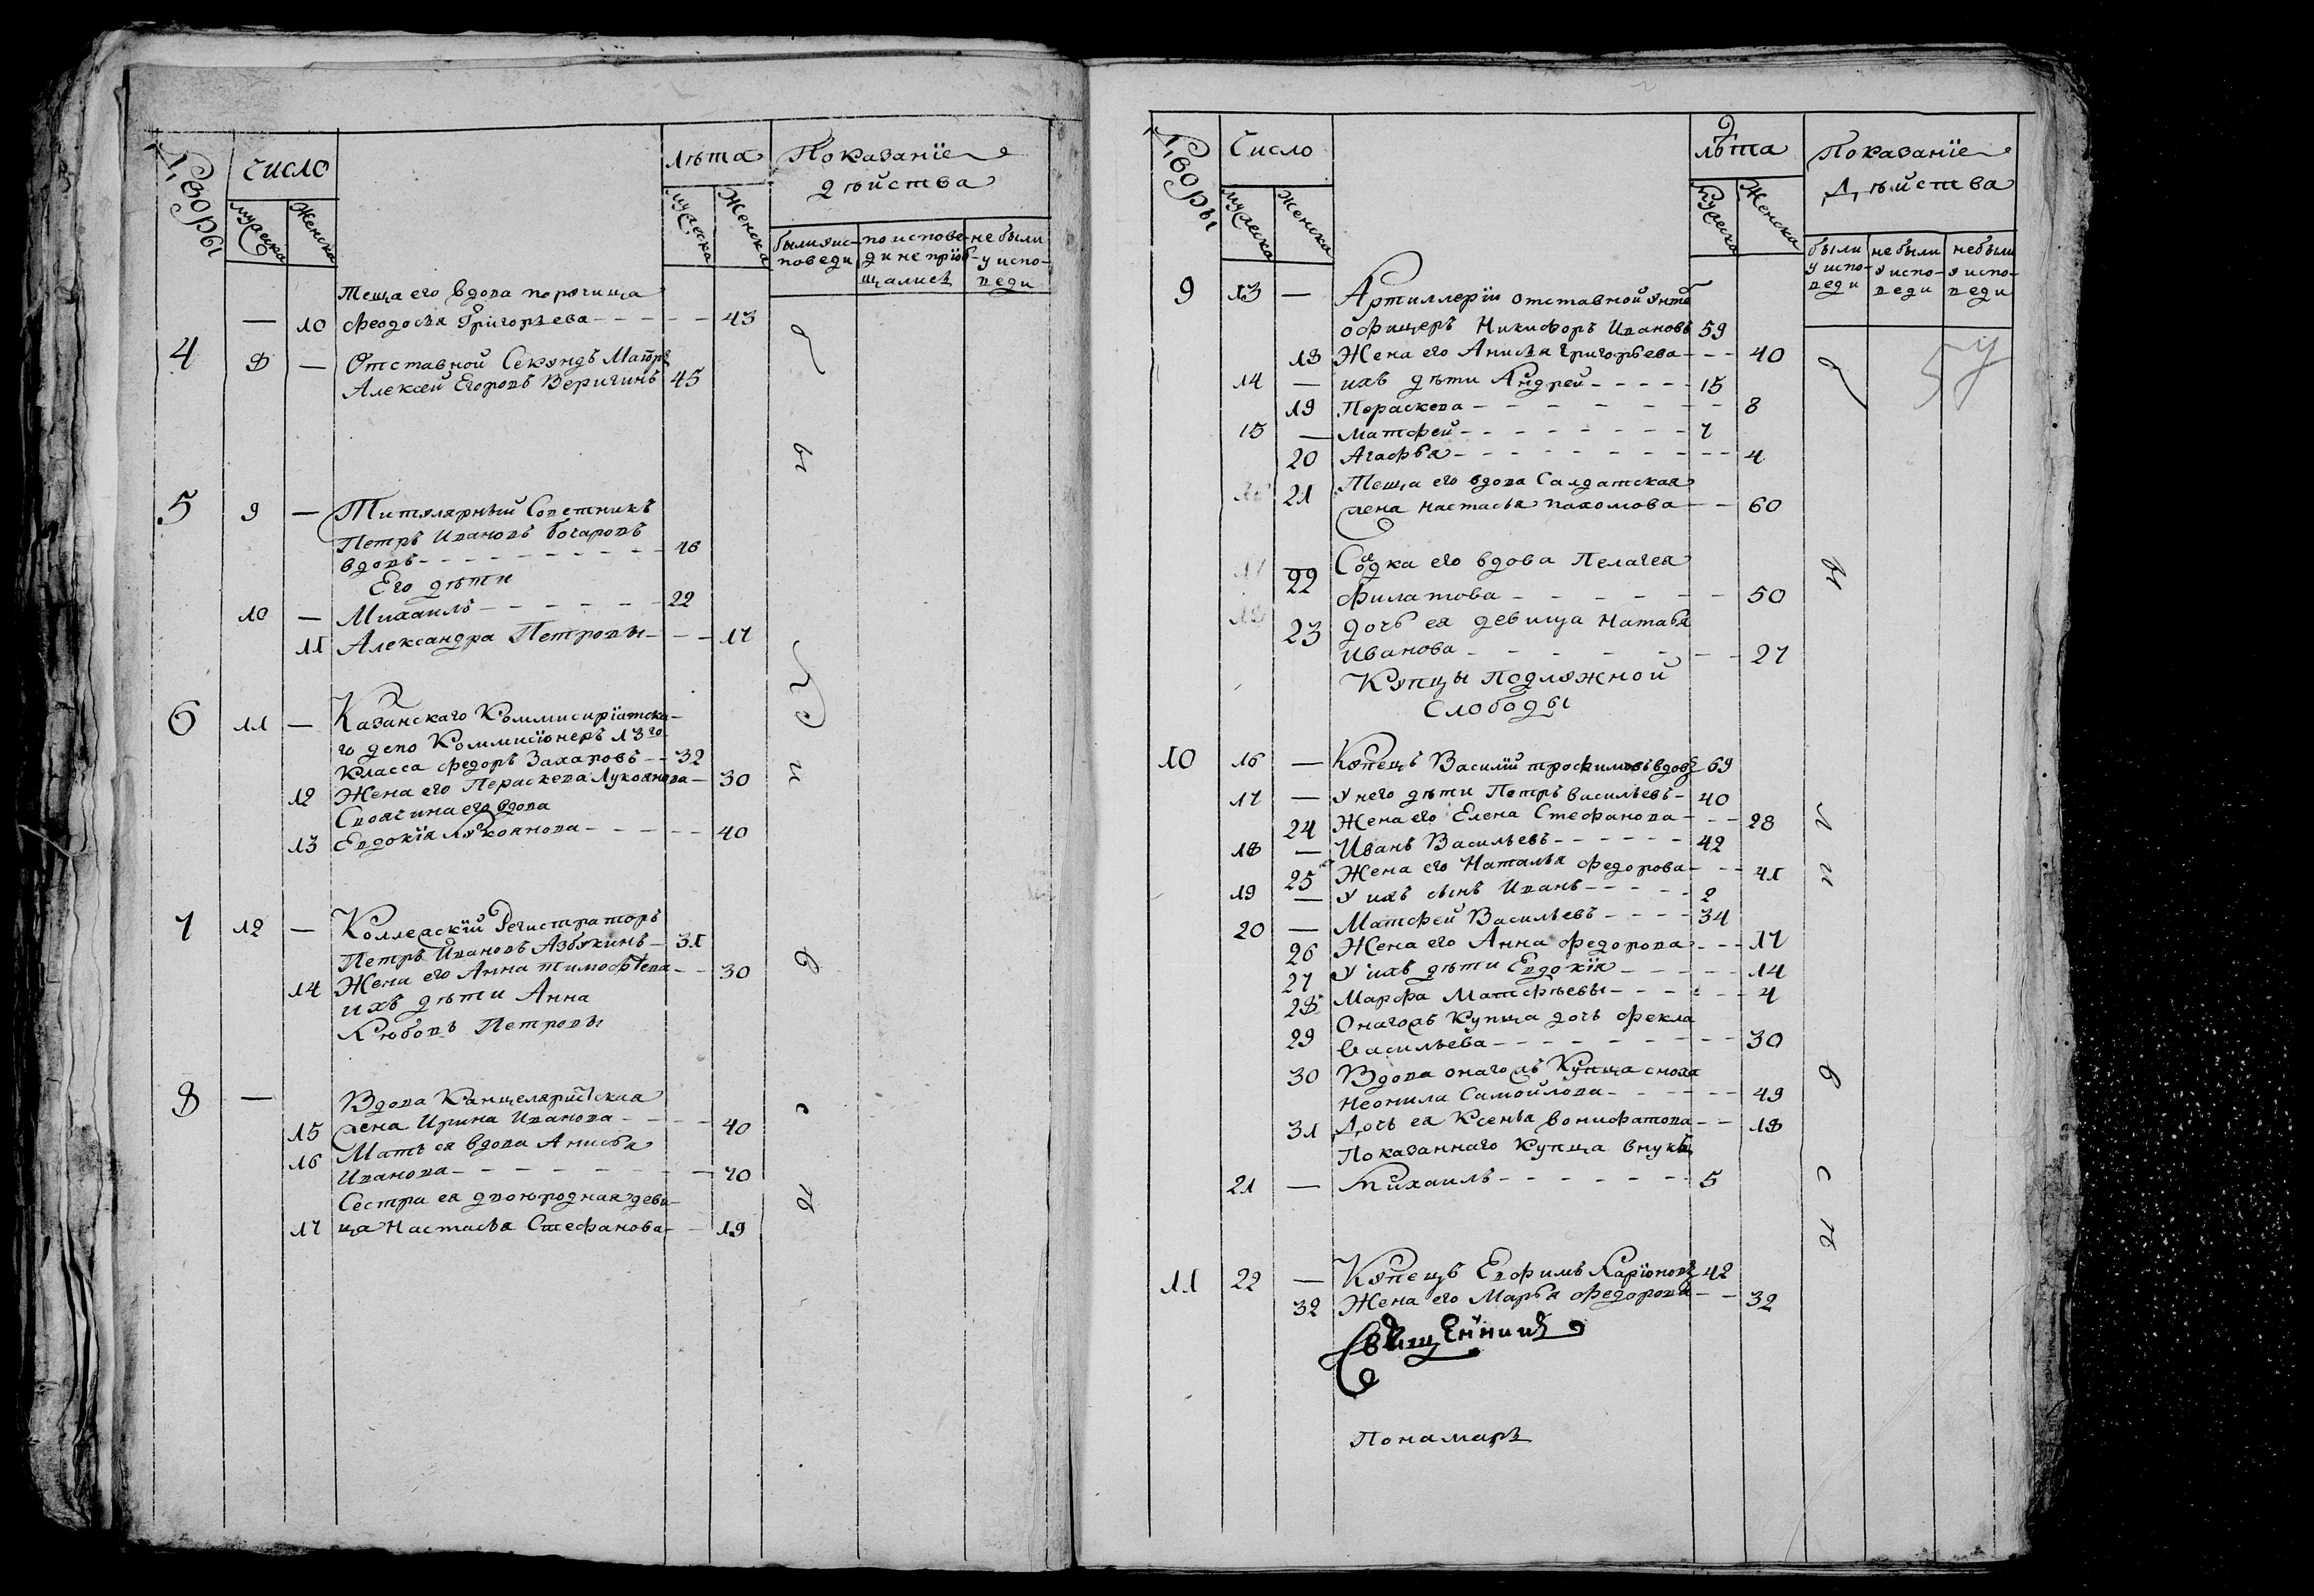 Дворы
Число
Лѣта
Показанїе
дѣиства
мужеска
Женска
мужеска
Женска
были у ис-
поведи
по испове-
ди не прїоб-
щались
не были
у испо-
веди
Теща его вдова порутчица
— 10 Феодосья Григорьева - - - - - 43
4 8 — Отставной Секундъ Маіоръ
Алексей Егоровъ Веригинъ 45
5 9 — Титулярный Советникъ
Петръ Ивановъ Бочаровъ
вдовъ - - - - - - - - - 46
Его дѣти
10 — Михаилъ - - - - - - 22
11 Александра Петровы - - - 17
6 11 — Казанскаго Коммисирїатска-
го депо Коммисїонеръ 13го
Класса Федоръ Захаровъ - - 32
12 Жена его Пераскева Лукоянова - 30
Своячина его вдова
13 Евдокїя Лукоянова - - - - - - 40
7 12 — Коллежскїй Регистраторъ
Петръ Ивановъ Азбукинъ - 31
14 Жена его Анна Тимофѣева - - 30
ихъ дѣти Анна
Любовь Петровы
8 — Вдова Канцеляристская
15 жена Ирина Иванова - - - - 40
16 Мать ея вдова Анисья
Иванова - - - - - - - - 70
Сестра ея двоюродная деви-
17 ца Настасья Стефанова - - 19
б ы л и в с ѣ
Дворы
Число
Лѣта
Показанїе
Дѣиства
мужеска
Женска
мужеска
Женска
были
у испо-
веди
не были
у испо-
веди
не были
у испо-
веди
57
9 13 — Артиллерїи отставной унтъ
офицеръ Никифоръ Ивановъ 59
18 Жена его Анисья Григорьева - - - 40
14 — ихъ дѣти Андрей - - - - - 15
19 Пораскева - - - - - - - - 8
15 — Матфей - - - - - - - - 7
20 Агафья - - - - - - - - - 4
21 Теща его вдова Салдатская
жена Настасья Пахомова - - 60
22 Сватка его вдова Пелагея
Филатова - - - - - - - 50
23 дочь ея девица Наталья
Иванова - - - - - - - - 27
Купцы Подлужной
Слободы
10 16 — Купецъ Василїй Трофимовъ вдовъ 69
17 — У него дѣти Петръ Васильевъ - 40
24 Жена его Елена Стефанова - - - 28
18 — Иванъ Васильевъ - - - - - - 42
25 Жена его Наталья Федорова - - - 41
19 — У ихъ сынъ Иванъ - - - - - 2
20 — Матфей Васильевъ - - - - 34
26 Жена его Анна Федорова - - - 17
27 У ихъ дѣти Евдокїя - - - - - - 14
28 Марфа Матфѣевы - - - - - - 4
Онагожъ Купца дочь Фекла
29 Васильева - - - - - - - - - 30
30 Вдова онагожъ Купца сноха
Неонила Самойлова - - - - - - 49
31 Дочь ея Ксенья Вонифатова - - 18
Показаннаго Купца внукъ
21 — Михаилъ - - - - - - - 5
11 22 — Купецъ Евфимъ Ларїоновъ 42
32 Жена его Марья Федорова - - 32
Священникъ
Понамарь
б ы л и в с ѣ